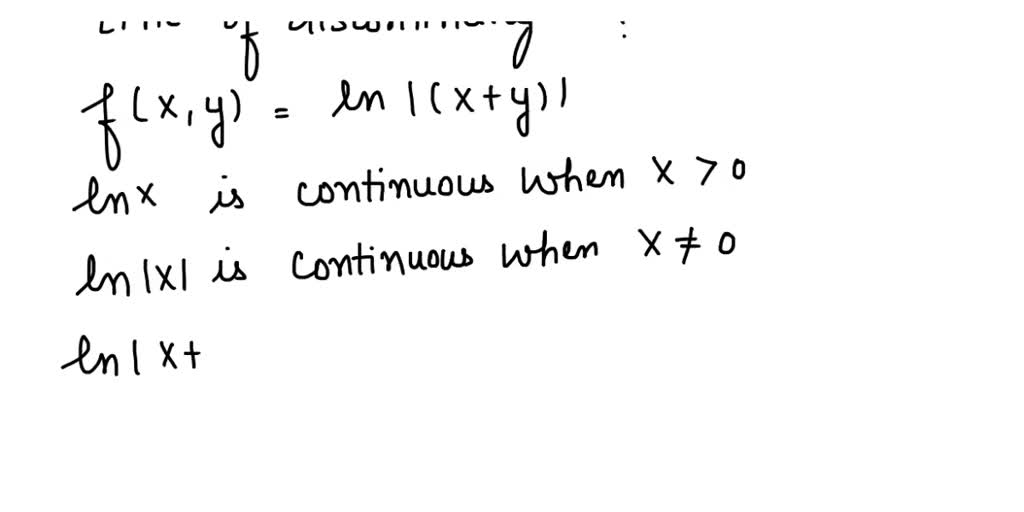 of :
f(x,y) = ln |(x+y)|
ln x is continuous when x > 0
ln |x| is continuous when x ≠ 0
ln | x+